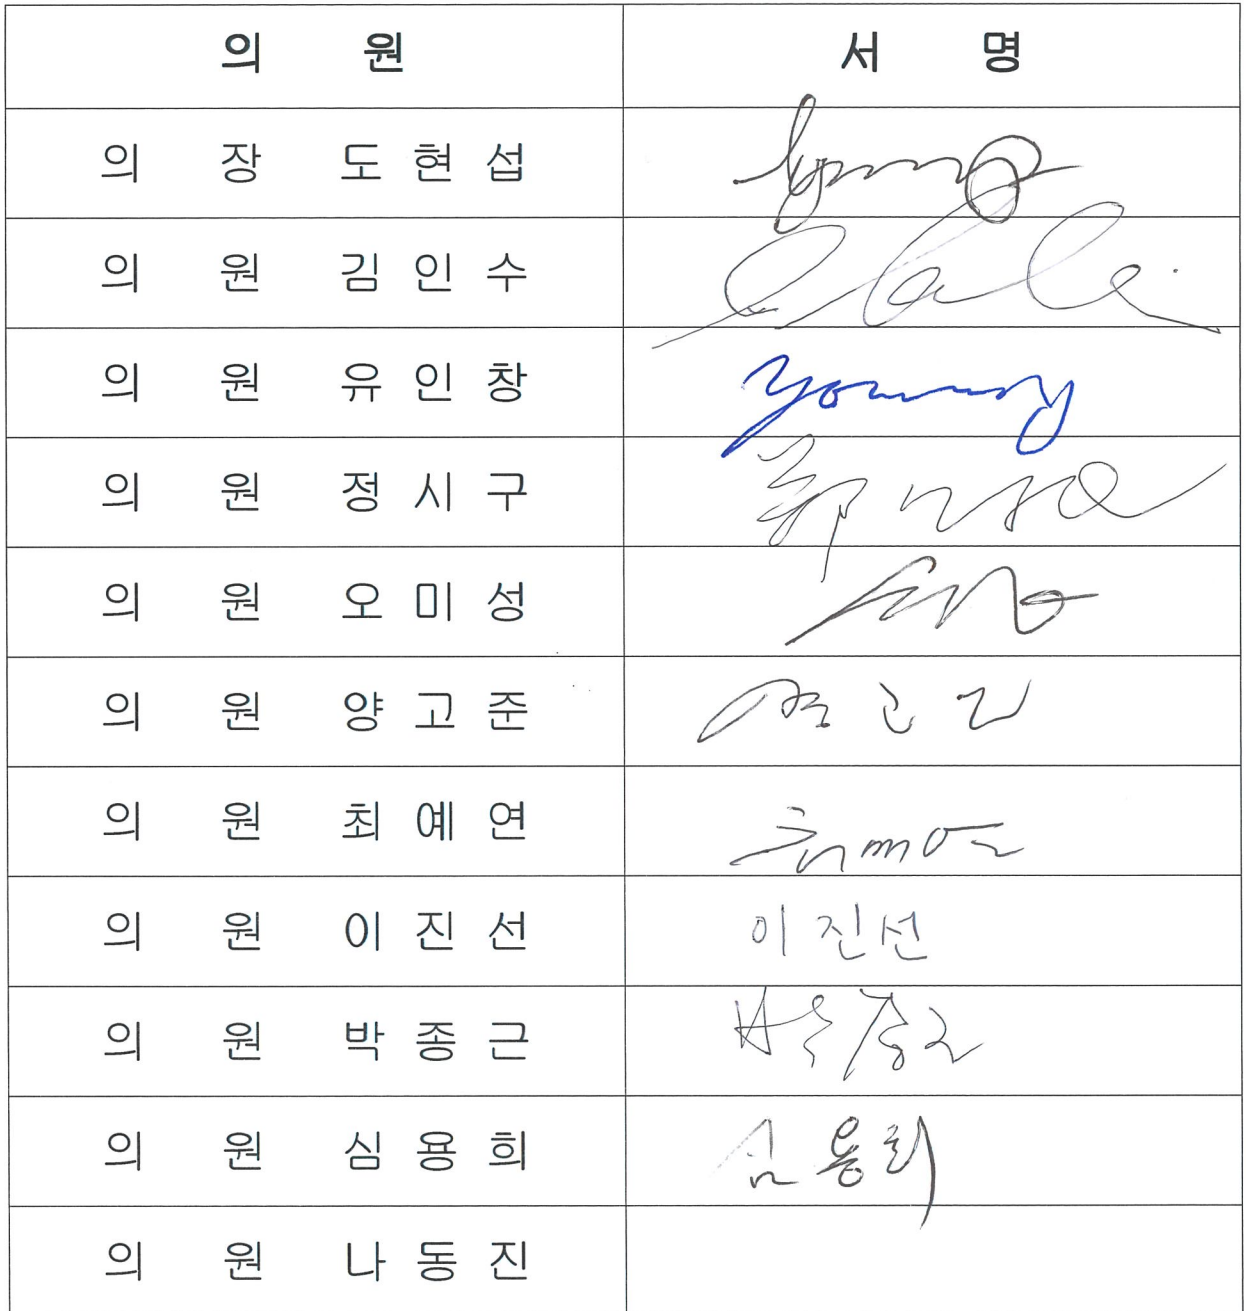 의 원 서 명
의 장 도 현 섭
의 원 김 인 수
의 원 유 인 창
의 원 정 시 구
의 원 오 미 성
의 원 양 고 준
의 원 최 예 연
의 원 이 진 선 이진선
의 원 박 종 근 박종근
의 원 심 용 희 심용희
의 원 나 동 진